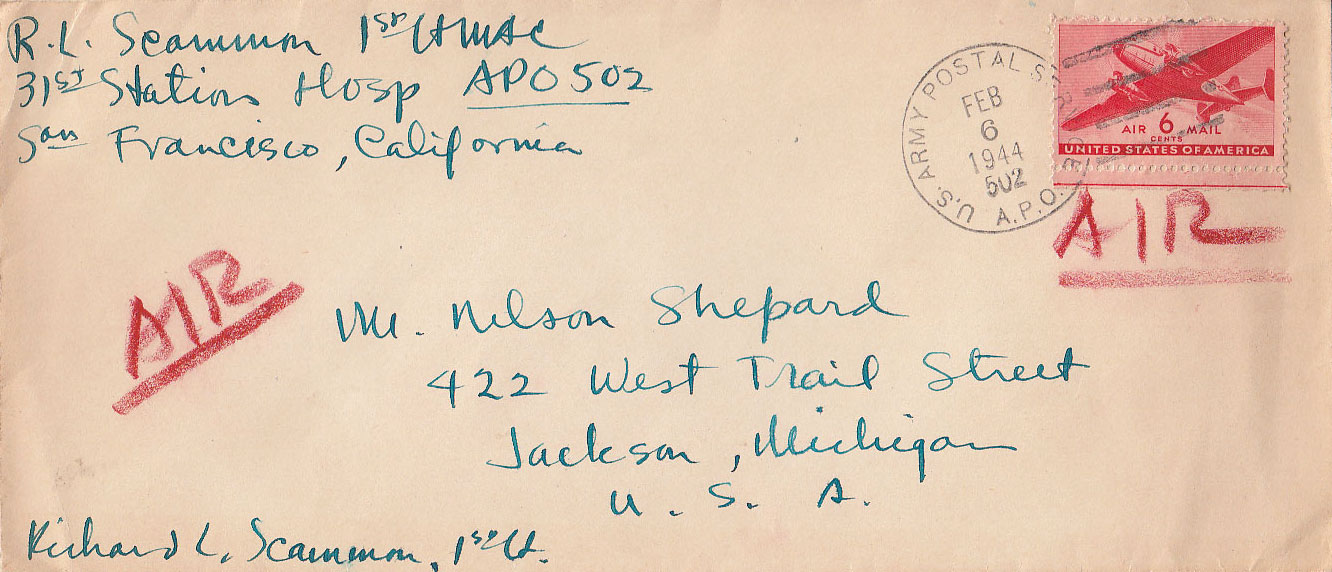 R.L. Scammon 1st Lt MAC
31st Station Hosp APO 502
San Francisco, California
U.S. ARMY POSTAL SERVICE
FEB
6
1944
502
A.P.O.
AIR 6 MAIL
CENTS
UNITED STATES OF AMERICA
AIR
AIR
Mr. Nelson Shepard
422 West Trail Street
Jackson, Michigan
U. S. A.
Richard L. Scammon, 1st Lt.